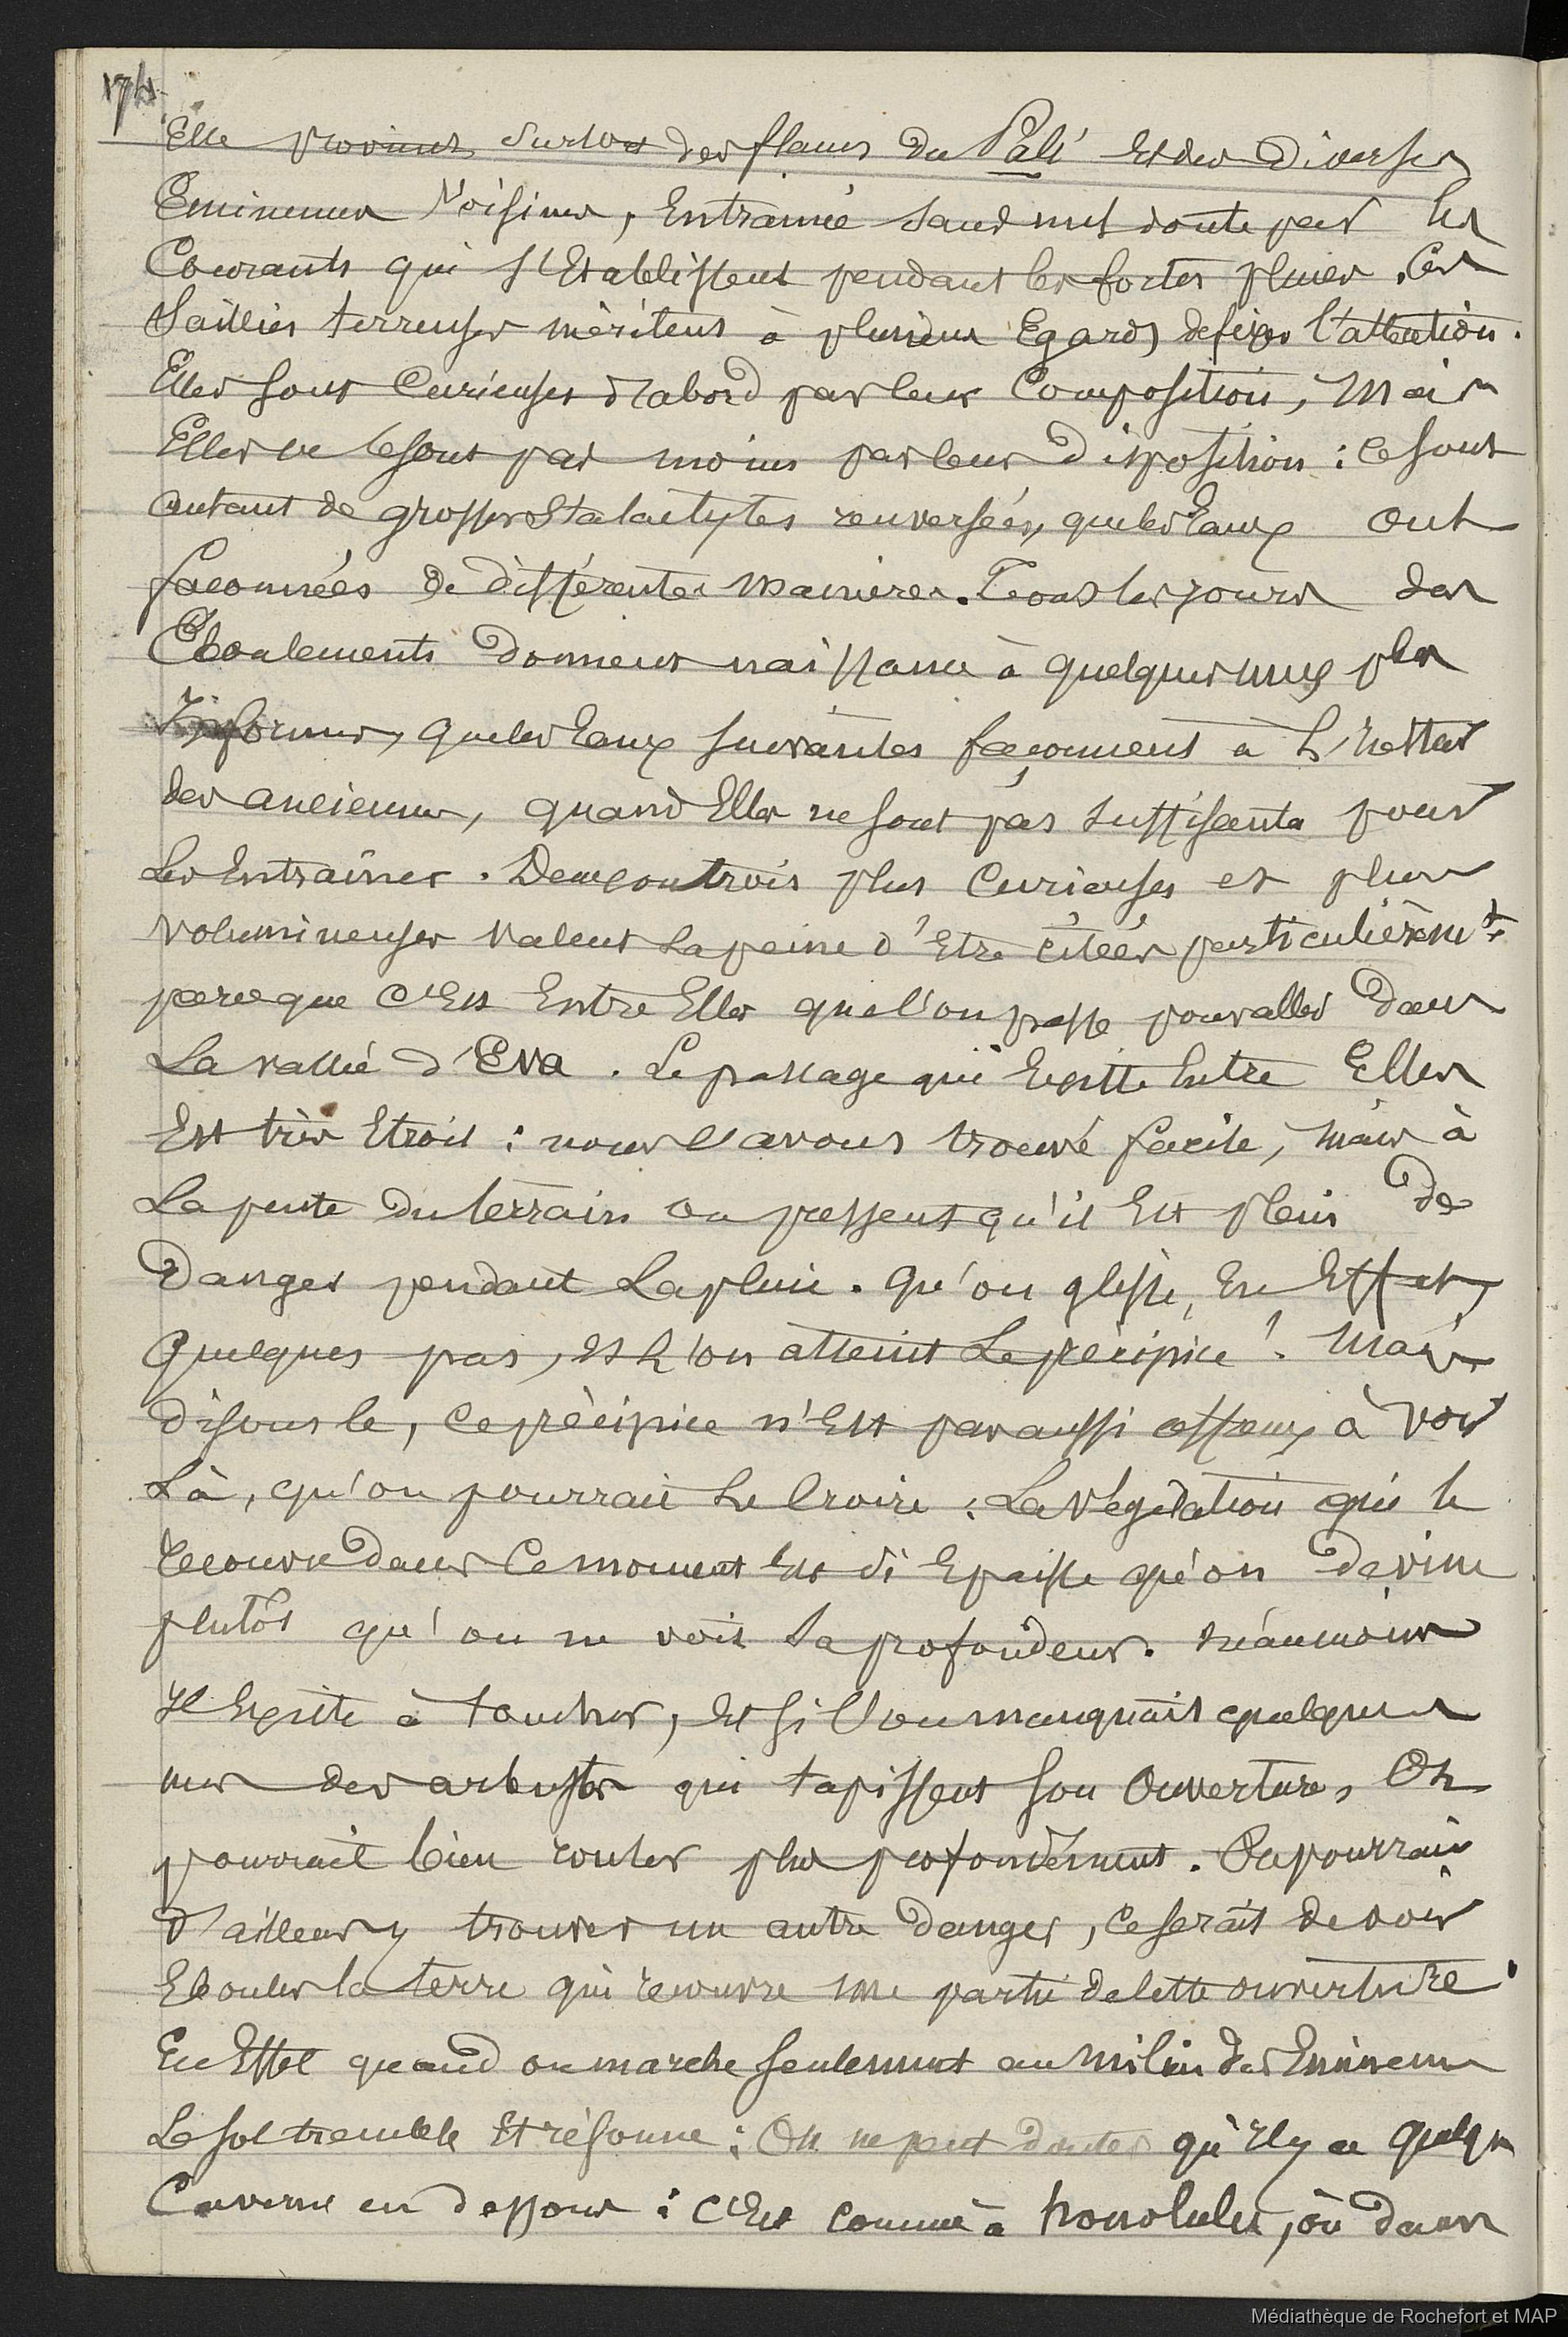 174.
Elle provient surtout des flancs du Pali et des diverses
Eminences voisines, Entrainée sans nul doute par les
Courants qui s'Etablissent pendant les fortes pluies. Ces
Saillies terreuses méritent à plusieurs Egards de fixer l'attention.
Elles sont Curieuses d'abord par leur Composition, Mais
Elles ne le sont pas moins par leur Disposition : ce sont
autant de grosses Stalactytes renversées, que les Eaux ont
façonnées de différentes Manieres. Tous les jours des
Eboulements Donnent naissance à quelques unes plus
Informes, que les Eaux suivantes façonnent à l'instar
des anciennes, quand Elles ne sont pas suffisantes pour
Les Entraîner. Deux ou trois plus Curieuses et plus
volumineuses valent la peine d'Etre citées particulièremt
parceque C'Est Entre Elles que l'on passe pour aller Dans
La vallée d'Eva. Le passage qui Existe Entre Elles
Est très Etroit : nous l'avons trouvé facile, mais à
La pente du terrain on pressent qu'il Est plein de
Danger pendant La pluie. Qu'on glisse, En Effet,
Quelques pas, et l'on atteint Le précipice ! Mais
Disons le, ce précipice n'Est pas aussi affreux à voir
Là, qu'on pourrait Le Croire : La végétation qui le
recouvre dans Ce moment Est si Epaisse qu'on devine
plutôt qu'on ne voit sa profondeur. néanmoins
Il Existe à toucher, Et si l'on manquait quelques
uns des arbustes qui tapissent son Ouverture, On
pourrait bien rouler plus profondément. On pourrait
D'ailleurs y trouver un autre Danger, ce serait de voir
Ebouler la terre qui recouvre une partie de cette ouverture.
En Effet quand on marche seulement au milieu des Eminences
Le sol tremble Et résonne : On ne peut douter qu'Il y a quelque
Caverne en dessous : C'Est comme à honolulu, où dans
Médiathèque de Rochefort et MAP